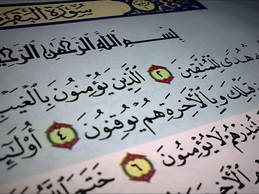 سُورَةُ البَقَ
بِسْمِ اللَّهِ الرَّحْمَٰنِ الرَّحِيمِ
هُدًى لِّلْمُتَّقِينَ ٢ الَّذِينَ يُؤْمِنُونَ بِالْغَيْبِ
قَبْلِكَ وَبِالْآخِرَةِ هُمْ يُوقِنُونَ ٤ أُولَٰئِ
تُنذِرْهُمْ لَا يُؤْمِنُونَ ٦ خَتَمَ